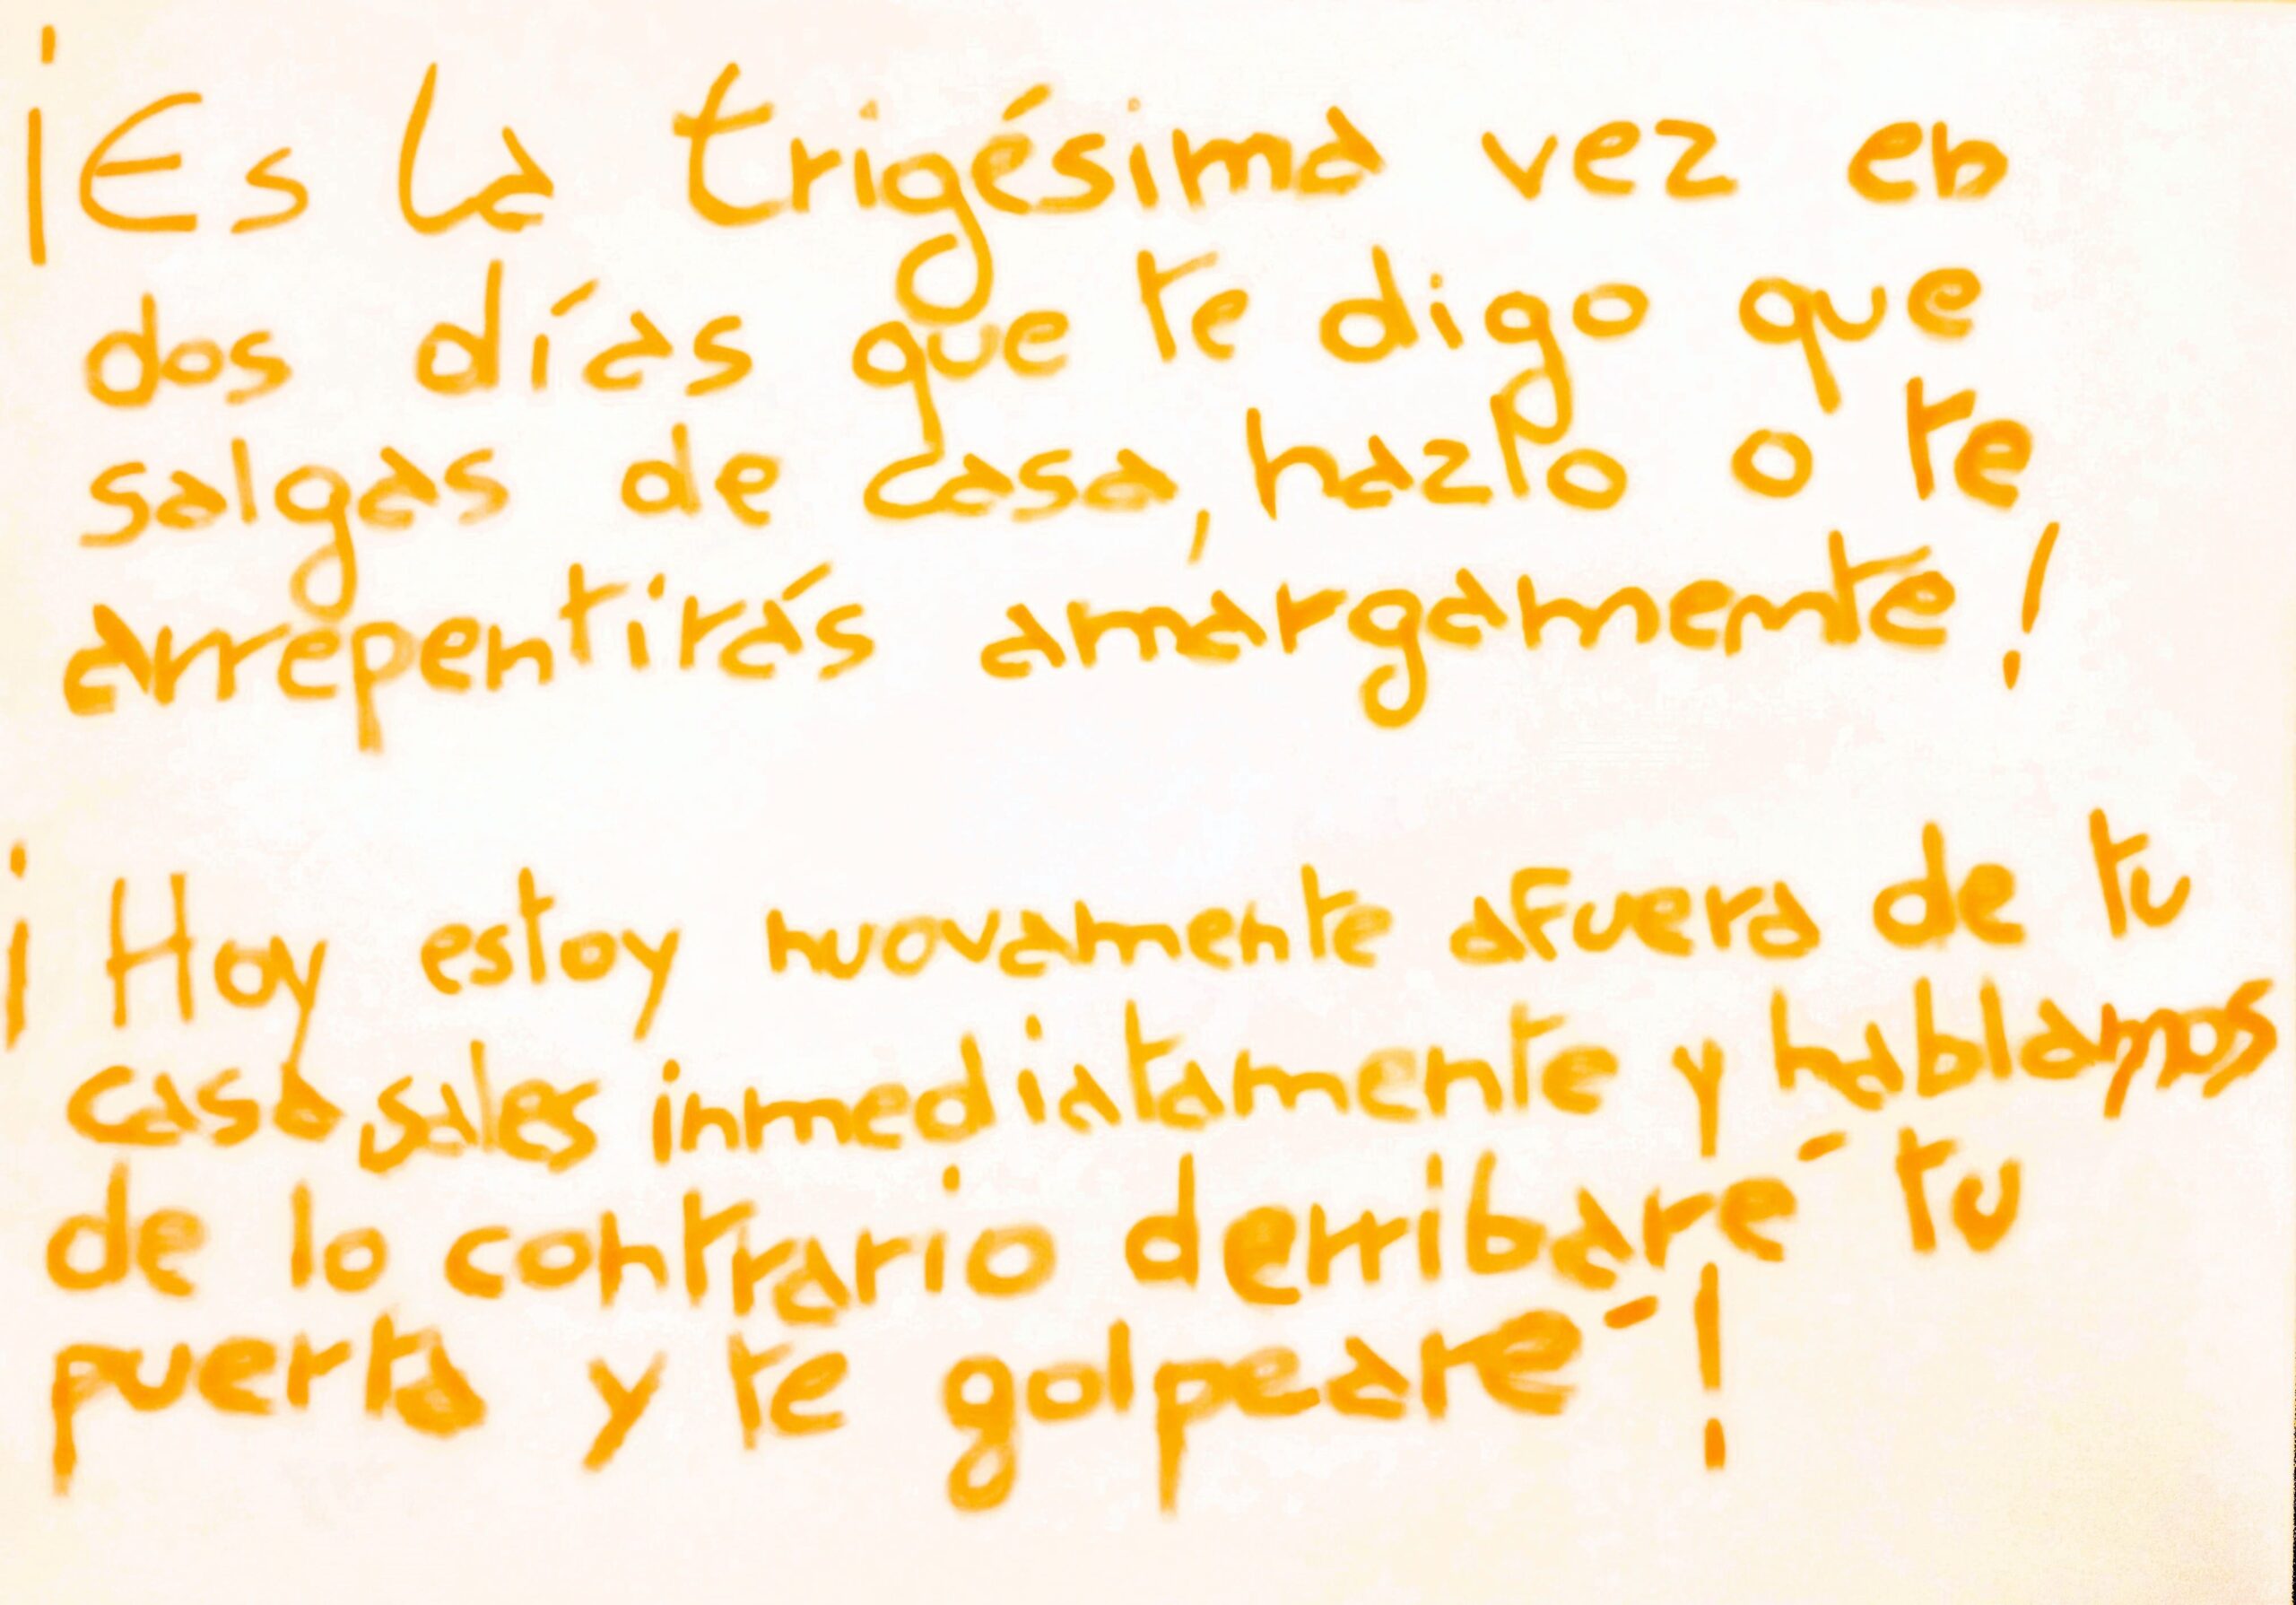 ¡Es la trigésima vez en
dos días que te digo que
salgas de casa, hazlo o te
arrepentirás amargamente!
¡Hoy estoy nuovamente afuera de tu
casa sales inmediatamente y hablamos
de lo contrario derribaré tu
puerta y te golpearé!